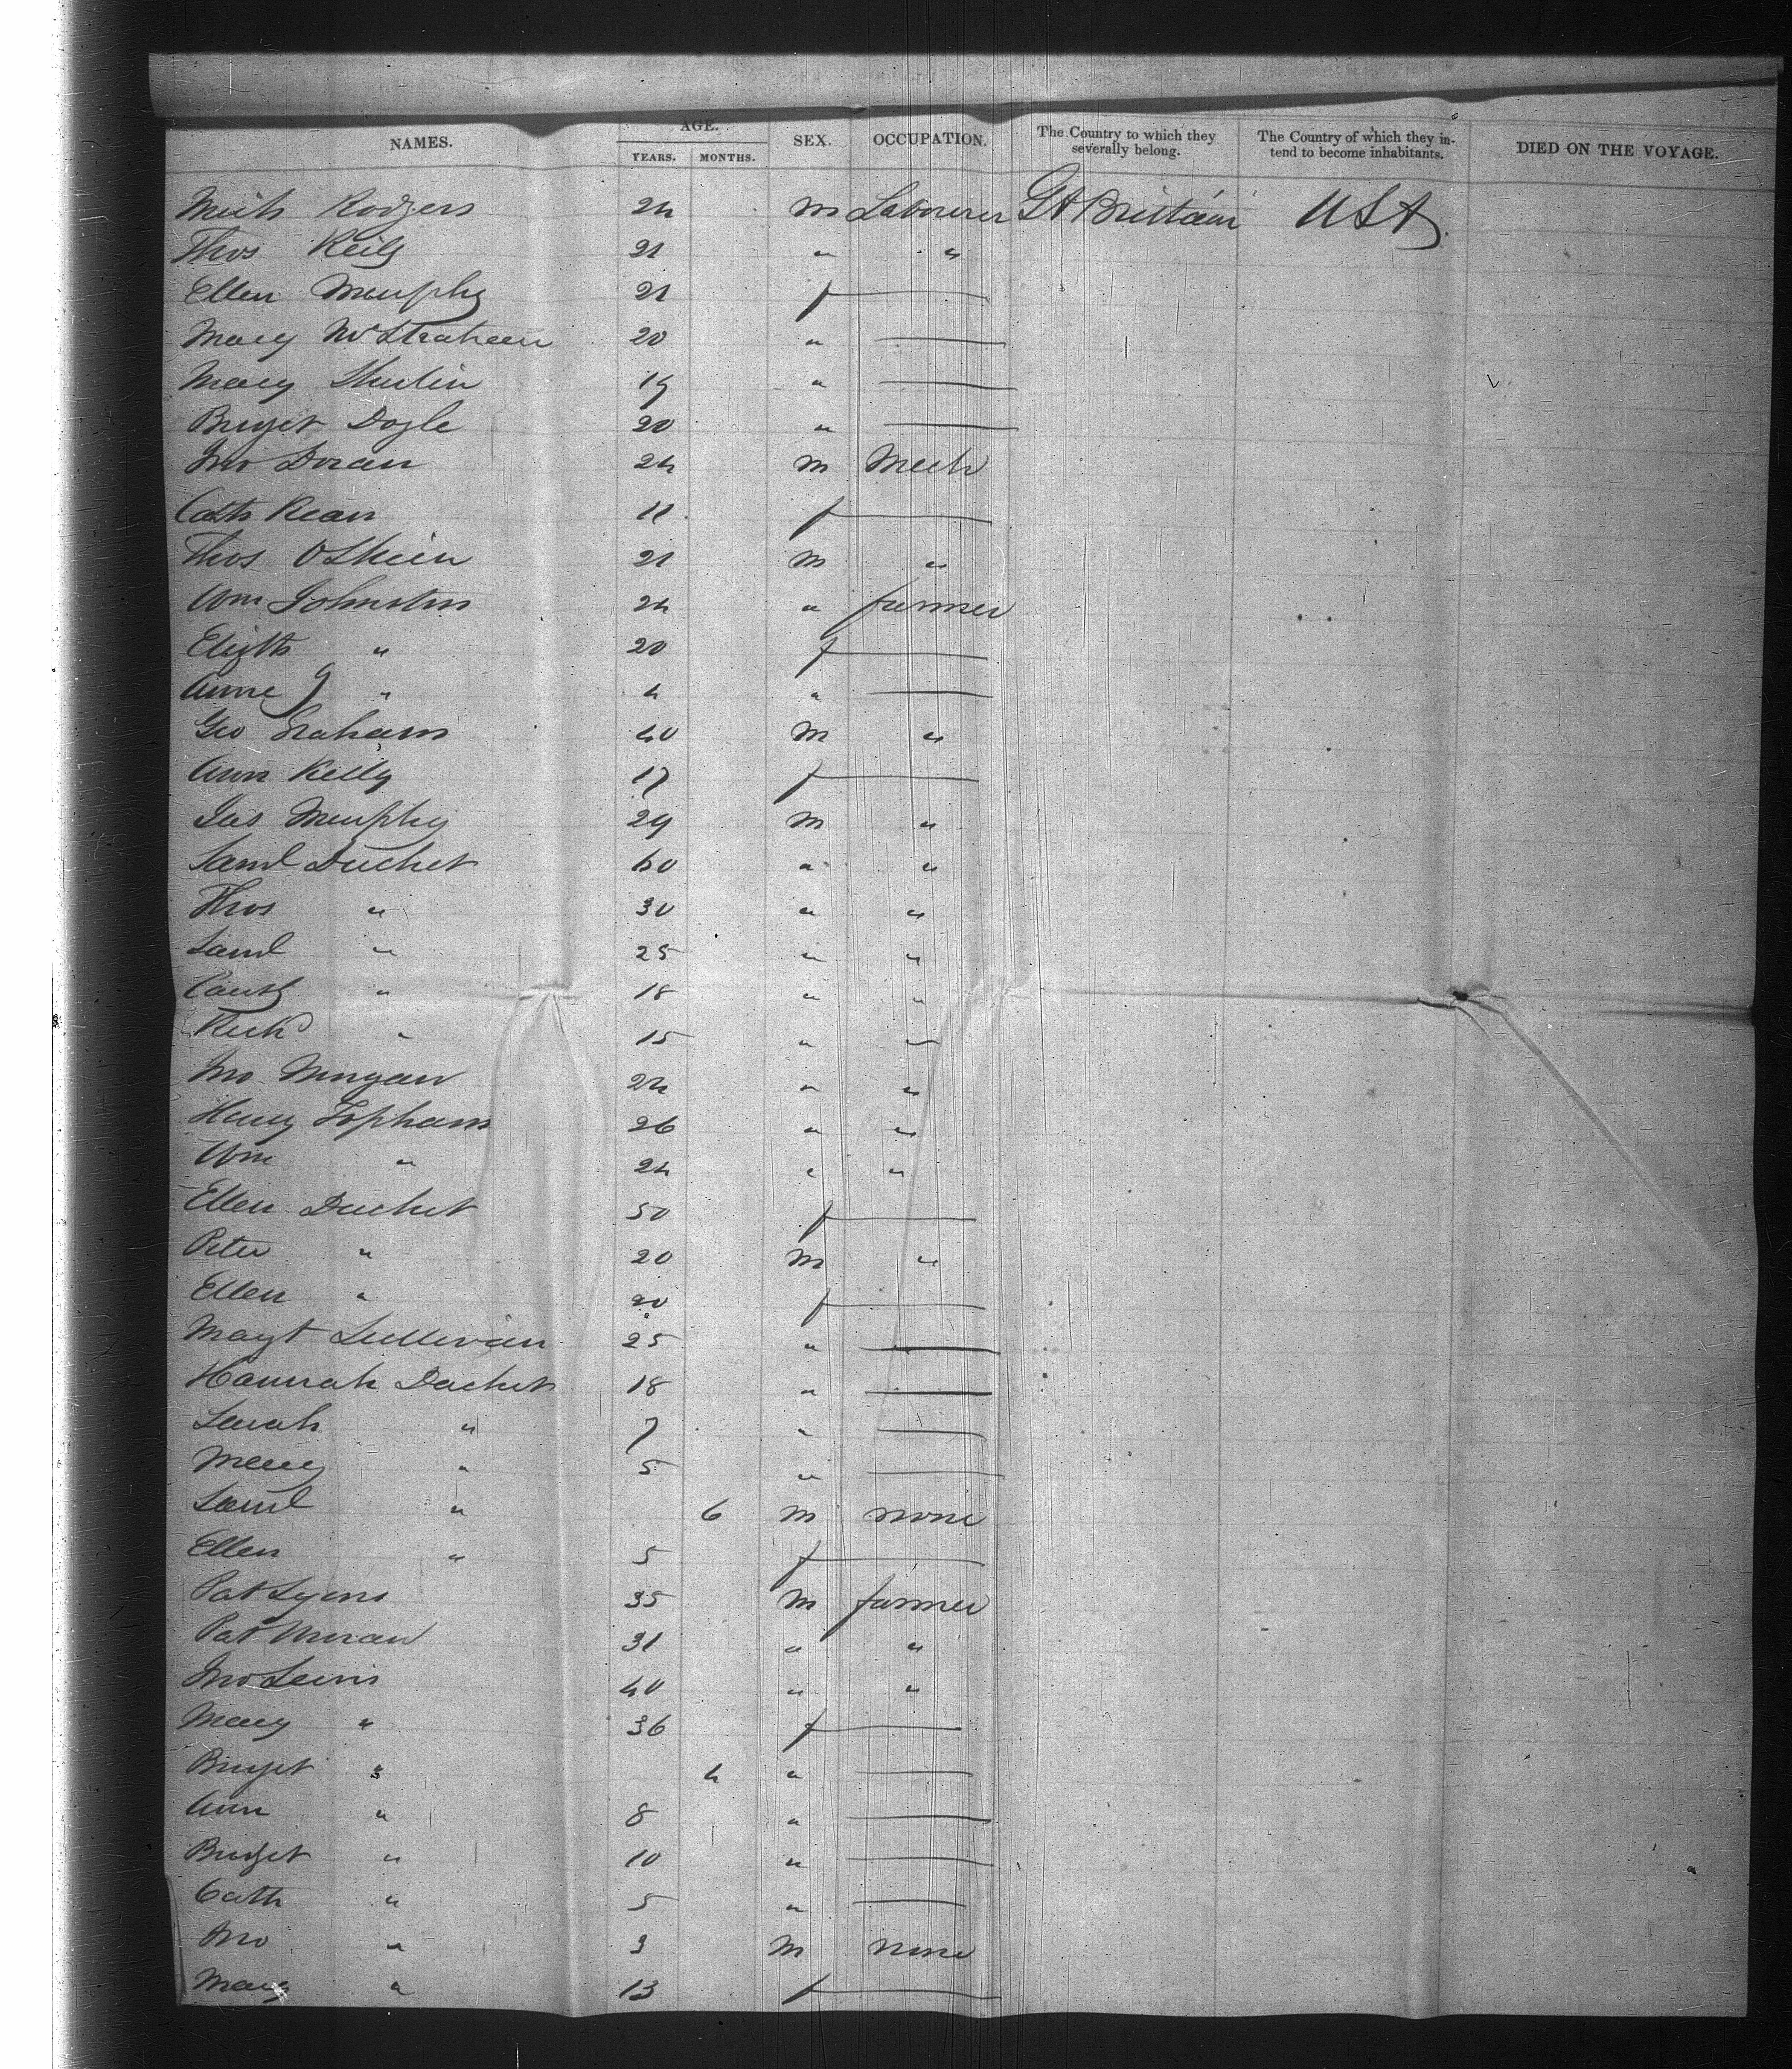 NAMES. AGE. SEX. OCCUPATION. The Country to which they severally belong. The Country of which they in- tend to become inhabitants. DIED ON THE VOYAGE.
YEARS. MONTHS.
Mich Rodgers 24 m Laborer Gt Brittain USA
Thos Reily 21 " "
Ellen Murphy 21 f
Mary 20 "
Mary 19 "
Bryet Doyle 20 "
Jno Doran 24 m Mech
Cath Kean 11 f
Thos 21 m "
Wm Johnston 24 " farmer
Elizth " 20 f
Anne J " 4 "
Geo Graham 40 m "
Ann Kelly 17 f
Jas Murphy 29 m "
Saml Duchet 60 " "
Thos " 30 " "
Saml " 25 " "
" 18 " "
Richd " 15 " "
Jno Morgan 24 " "
Henry Topham 26 " "
Wm " 24 " "
Ellen Duchet 50 f
Peter " 20 m "
Ellen " 20 f
Magt Sullivan 25 "
Hannah Duchet 18 "
Sarah " 7 "
Mary " 5 "
Saml " 6 m none
Ellen " 5 f
Pat Lyons 35 m farmer
Pat Moran 31 " "
Jno Lewis 40 " "
Mary " 36 f
Bryet " 4 "
Ann " 8 "
Bridget " 10 "
Cath " 5 "
Jno " 3 m none
Mary " 13 f